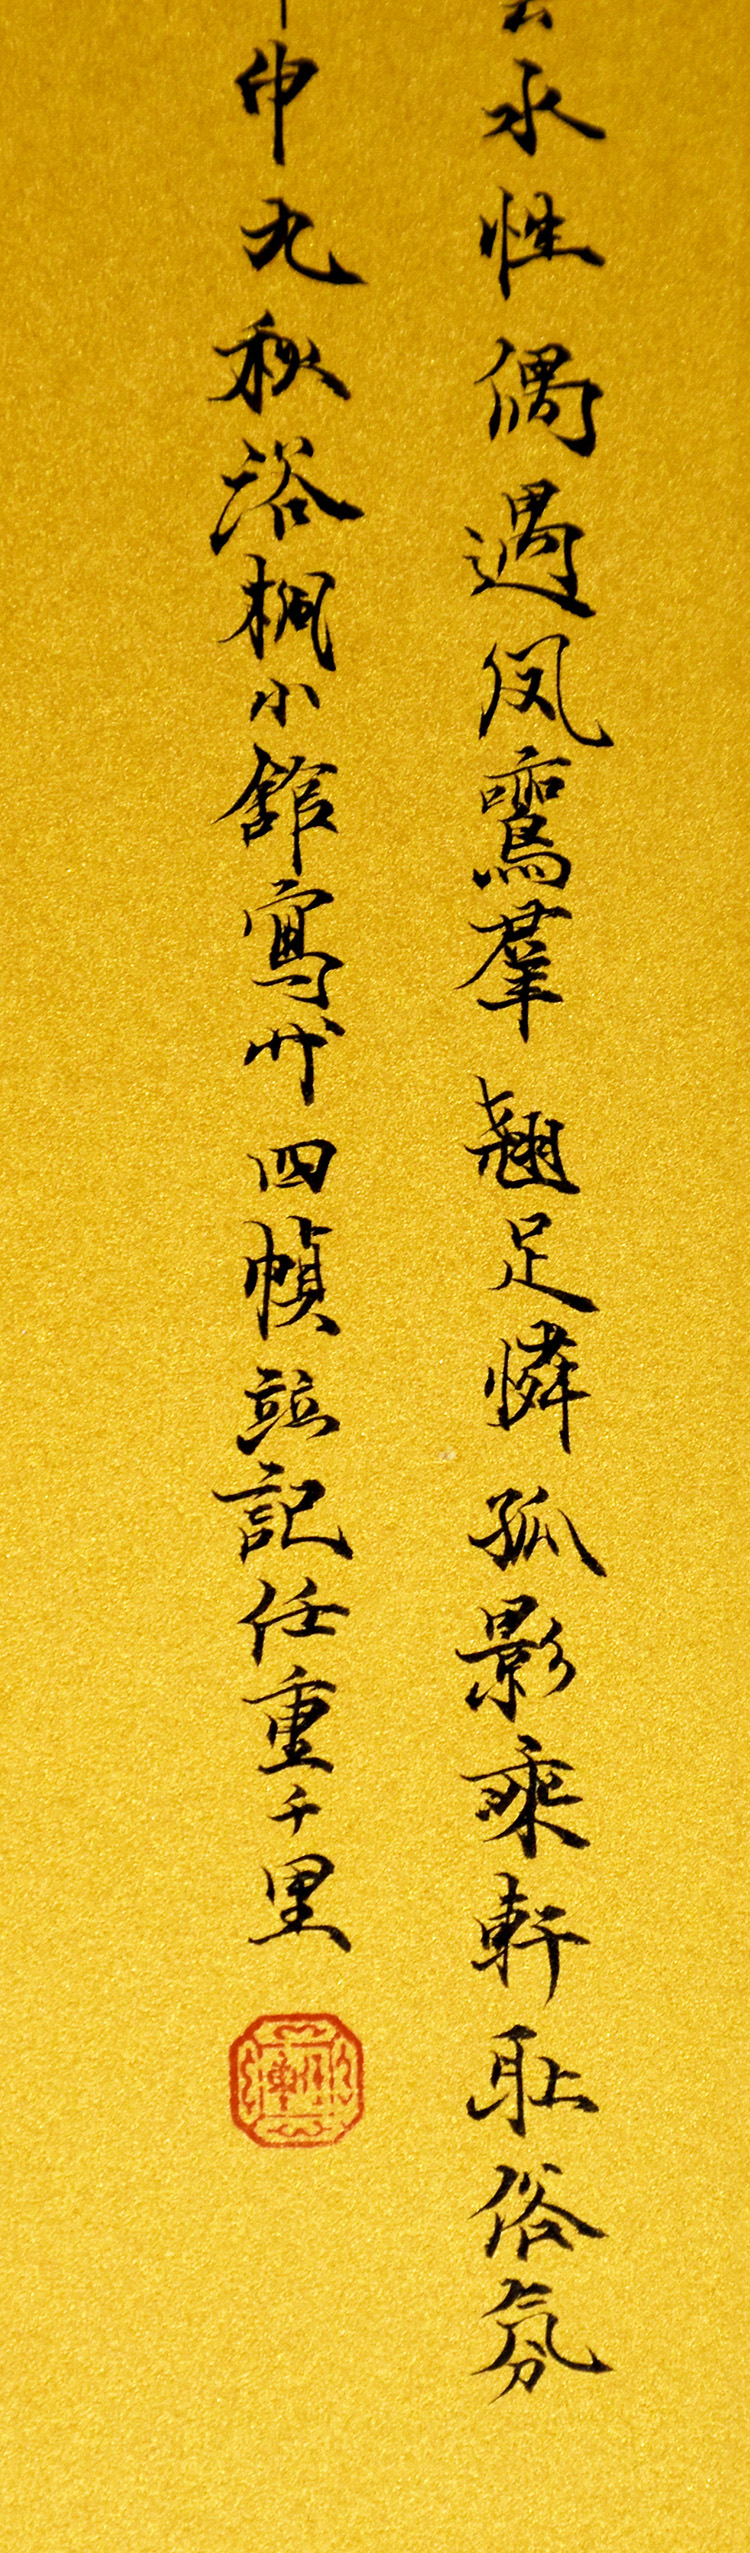 水性偶遇凤鸞羣翹足憐孤影乘軒耻俗氛
申九秋浴楓小館寫竹四幀竝記任重千里